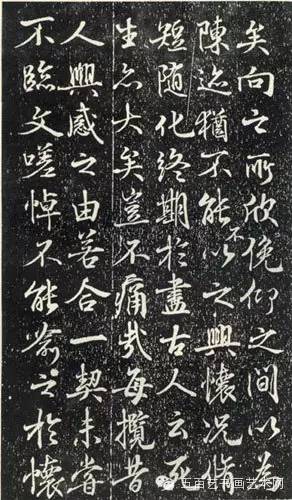 矣向之所欣俛仰之間以為
陳迹猶不能不以之興懷況脩
短随化終期於盡古人云死
生亦大矣豈不痛哉每攬昔
人興感之由若合一契未嘗
不臨文嗟悼不能喻之於懷
五百艺书画艺术网